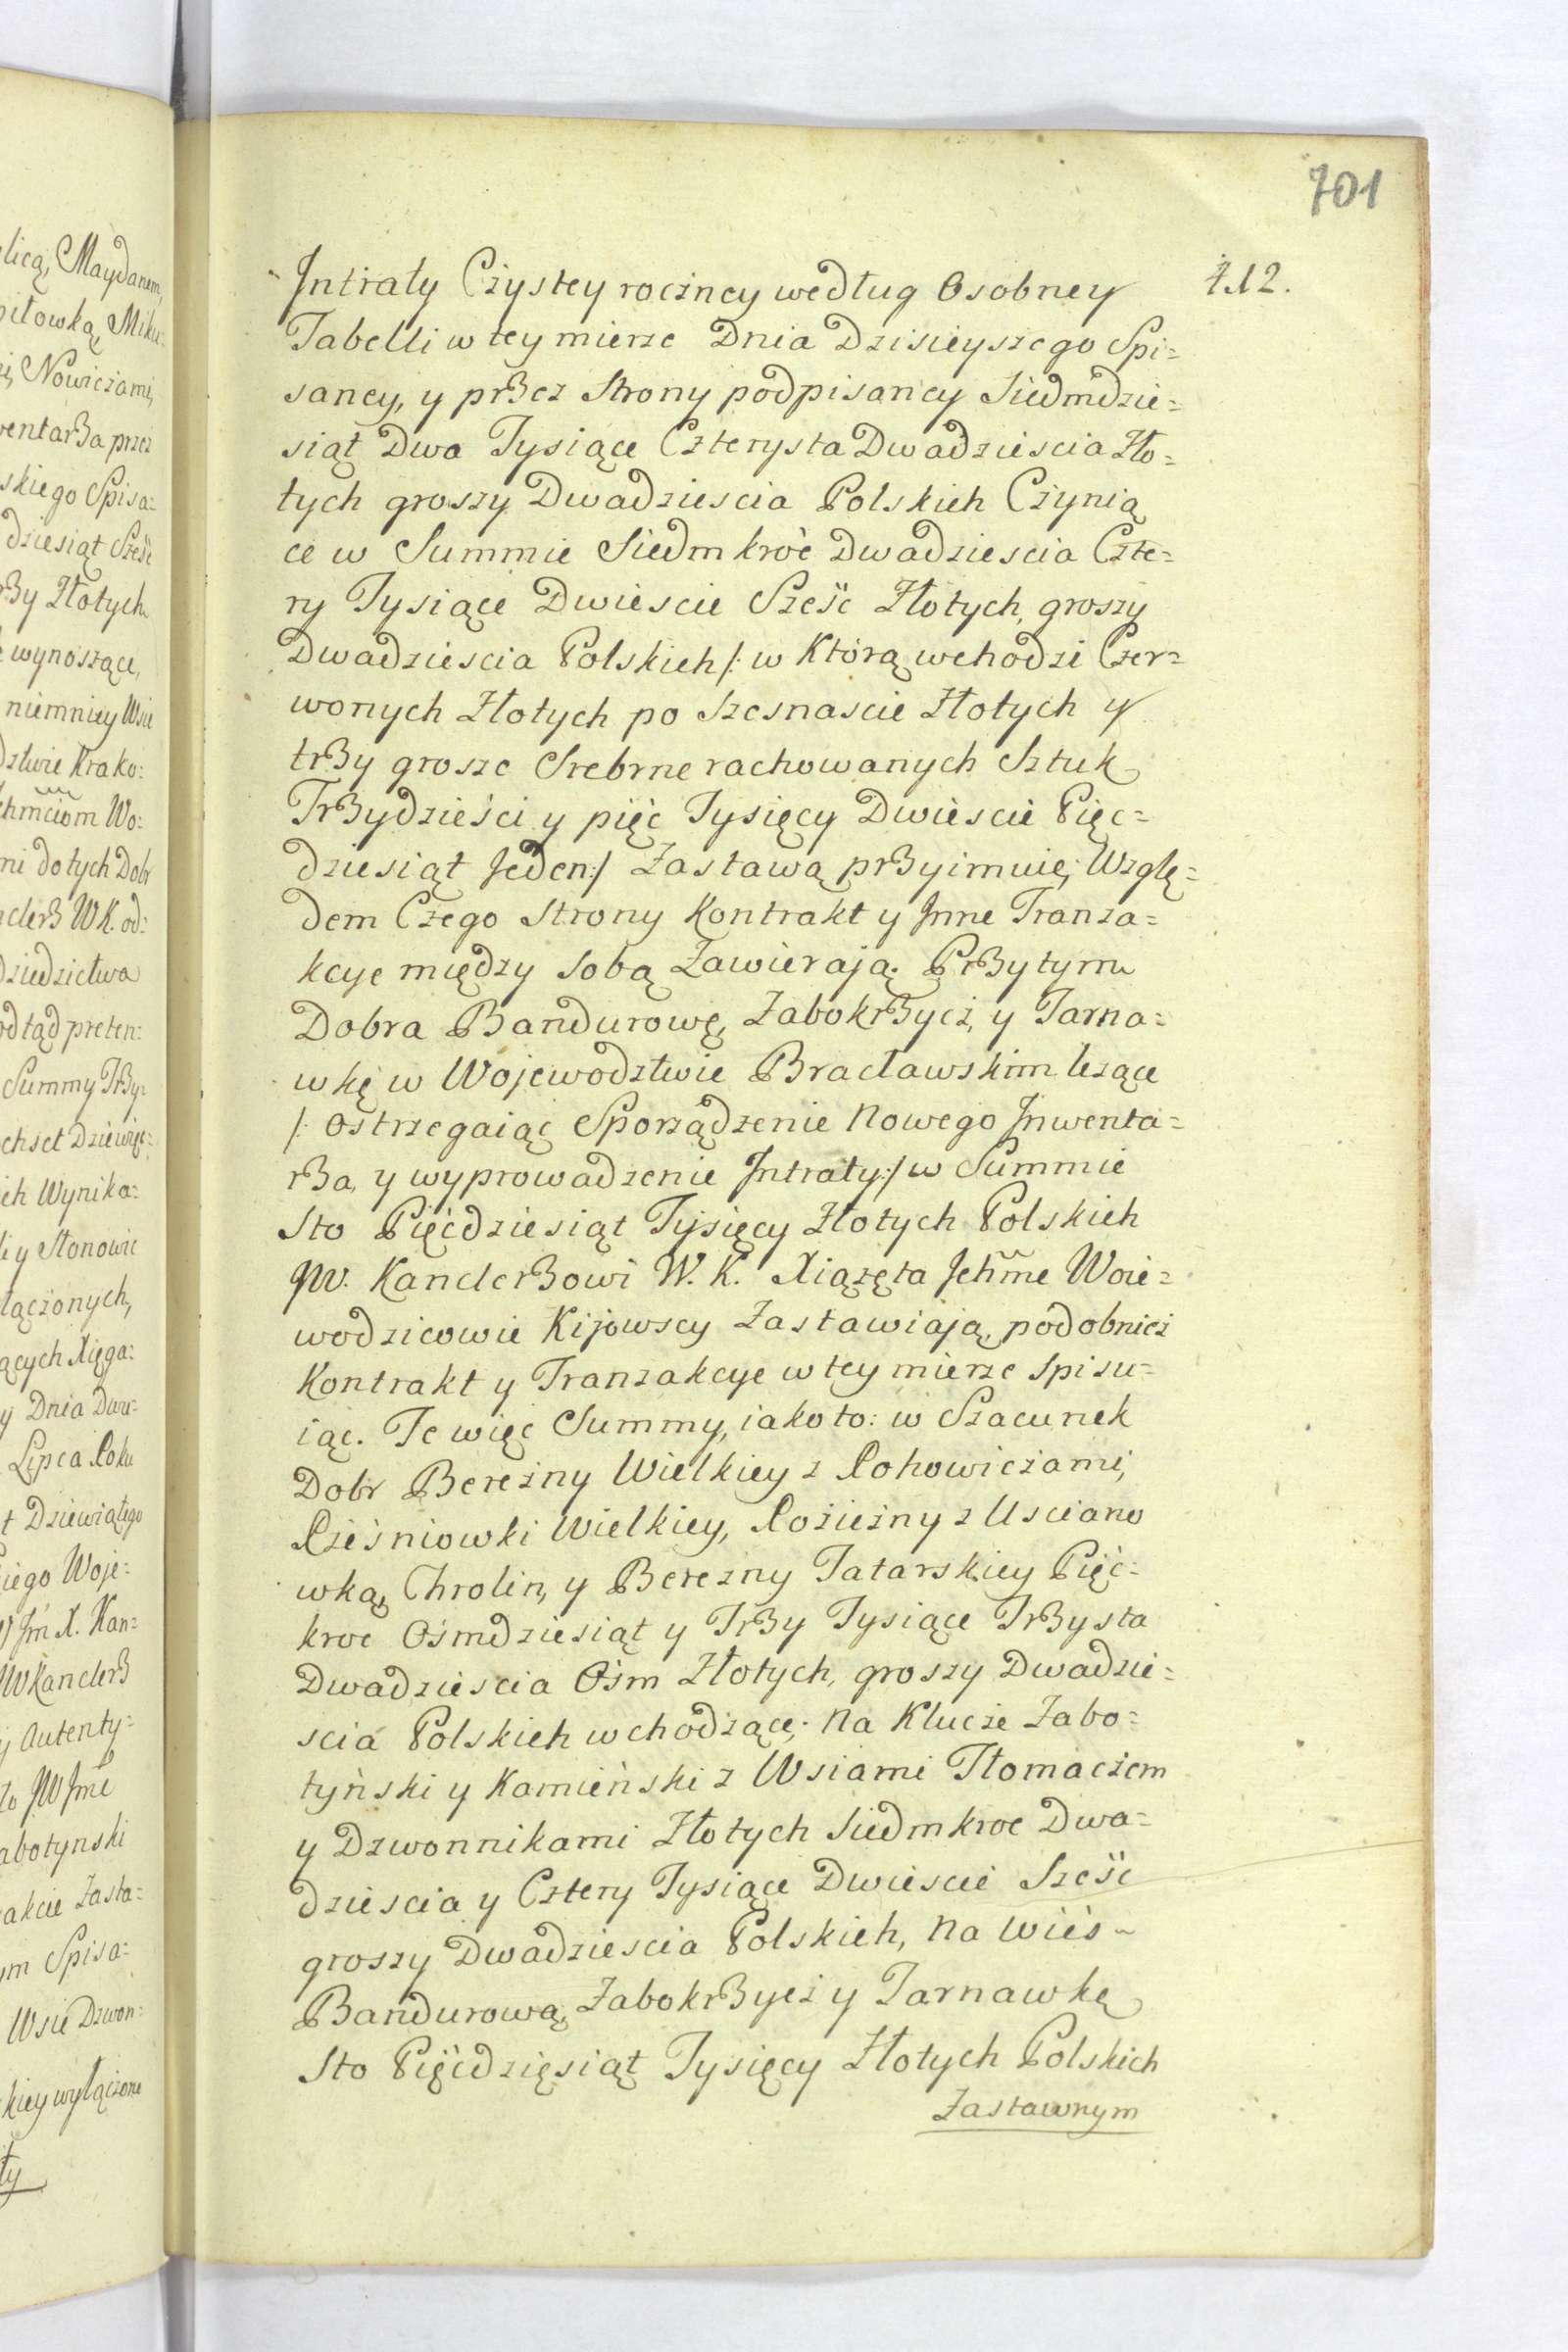 701
412.
Intraty Czystey roczney według Osobney
Tabelli w tey mierze Dnia Dzisieyszego Spi=
saney, y przez Strony podpisaney Siedmdzie=
siąt Dwa Tysiące Czterysta Dwadziescia Zło=
tych groszy Dwadziescia Polskich Czynią
ce w Summie Siedm kroć Dwadziescia Czte=
ry Tysiące Dwiescie Sześć Złotych, groszy
Dwadziescia Polskich /: w Którą wchodzi Czer=
wonych Złotych po Szesnascie Złotych y
trzy grosze Srebrne rachowanych Sztuk
Trzydzieści y pięć Tysięcy Dwiescie Pięc=
dziesiąt Jeden :/ Zastawą przyimuie; Wzglę=
dem Czego Strony Kontrakt y Inne Tranza=
kcye między Sobą Zawierają. Przytym
Dobra Bandurowę, Zabokrzycz, y Tarna=
wkę w Wojewodztwie Bracławskim lezące
/: Ostrzegaiąc Sporządzenie Nowego Inwenta=
rza, y wyprowadzenie Intraty :/ w Summie
Sto Pięcdziesiąt Tysięcy Złotych Polskich
JW. Kanclerzowi W. K. Xiązęta Jchmć Woie=
wodzicowie Kijowscy Zastawiają, podobnież
Kontrakt y Tranzakcye w tey mierze Spisu=
iąc. Te więc Summy, iako to: w Szacunek
Dobr Berezny Wielkiey z Rohowiczami,
Rześniowki Wielkiey, Roziezny z Usciano
wką, Chrolin, y Berezny Tatarskiey Pięć=
kroc Ośmdziesiąt y Trzy Tysiące Trzysta
Dwadziescia Ośm Złotych, groszy Dwadzie=
scia Polskich wchodzące; Na Klucze Zabo=
tyński y Kamieński z Wsiami Tłomaczem
y Dzwonnikami Złotych Siedmkroc Dwa=
dziescia y Cztery Tysiące Dwiescie Sześć
groszy Dwadziescia Polskich, Na Wieś
Bandurową, Zabokrzycz y Tarnawkę
Sto Pięćdzięsiąt Tysięcy Złotych Polskich
Zastawnym
licą, Maydanem,
piłowką, Miku=
Nowiczami,
wentarza przez
skiego Spisa=
dziesiąt Sześć
rzy Złotych
wynoszące,
niemniey Wsie
dztwie Krako=
chmciom Wo=
ni do tych Dobr
nclerz WK. od=
dziedzictwa
odtąd preten=
Summy Trzy=
chset Dziewięc=
ich Wynika=
li y Stonowic
łączonych,
ących Xięga=
y Dnia Dwu=
Lipca Roku
t Dziewiątego
iego Woje=
Jm X. Kan=
WKanclerz
y Autenty=
to JW Jmć
abotynski
akcie Zasta=
ym Spisa=
Wsie Dzwon=
kiey wyłączone
ty